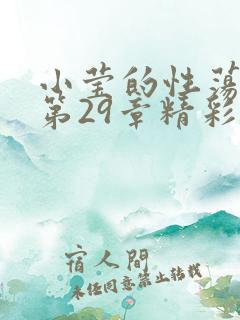 小莹的性荡
第29章精彩
宿人間
未经同意禁止转载